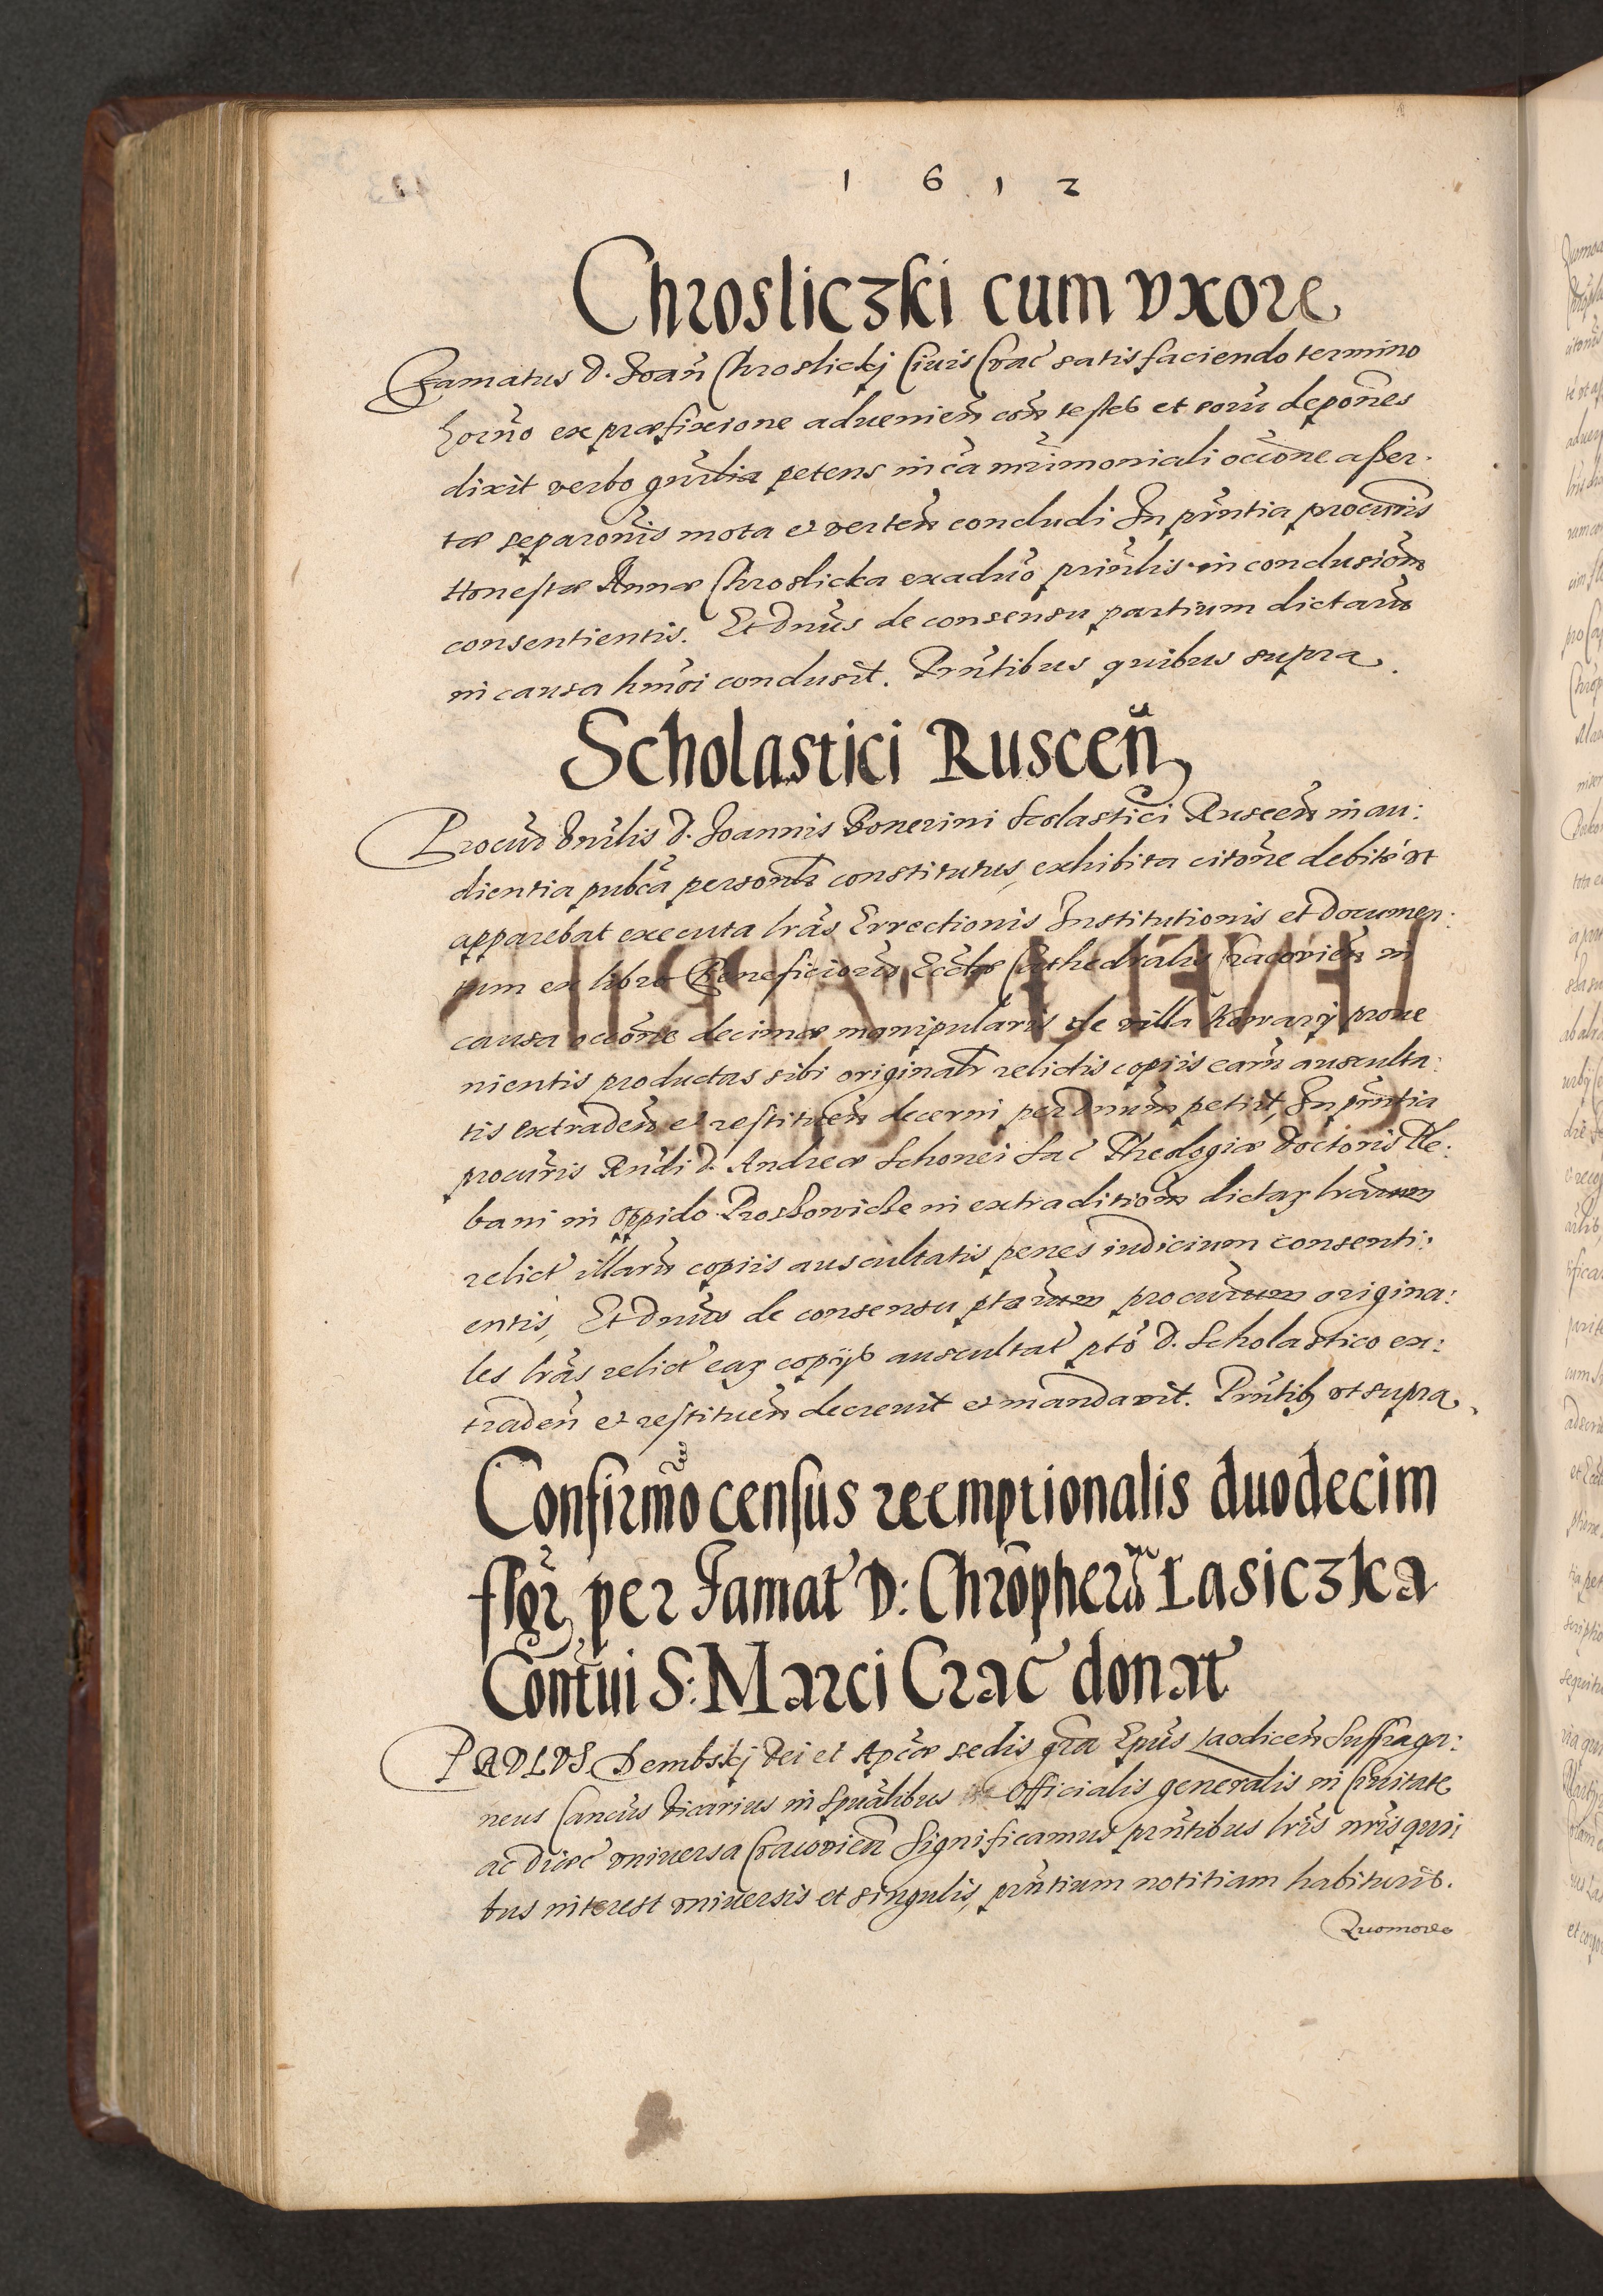 1 6 1 2
Chrosliczki cum vxore
Famatus D. Joañ Chroslickj Ciuis Crac̃ satisfaciendo termino
horño ex præfixione aduenieñ coñ testes et eorũ depoñes
dixit verbo gñrlia petens in cã mr̃imoniali occõne asser-
tæ separoñis mota et verteñ concludi In pr̃ntia procuris
Honestæ Annæ Chroslicka ex aduõ prinlis in conclusionẽ
consentientis. Et Dnũs de consensu partium dictarũ
in causa hmõi conclusit. Pr̃ntibus quibus supra.
Scholastici Rusceñ
Procur D. Joannis Bonerini Scolastici Rusceñ in au:
dientia pubca personlr constitutus, exhibita citõne debitè vt
apparebat executa lrãs Errectionis Institutionis et documen:
tum ex libro Beneficiorũ Eccliæ Cathedralis Cracovieñ in
causa occõne decimæ manipularis de villa Konrary proue
nientis productas sibi originalr relictis copiis earũ ausculta:
tis extradeñ et restitueñ decerni per Dnum petiit, In pr̃ntia
procuris Rndi D. Andreæ Schonei Sac̃ Theologiæ Doctoris Ple:
bani in Oppido Proszowicze in extraditionẽ dictaȝ lrãrum
relict̃ illarũ copiis auscultatis penes iudicium consenti:
entis, Et Dnũs de consensu ptarum procurum origina:
les lrãs relict̃ eaȝ copijs auscultat̃ ptõ D. Scholastico ex:
tradeñ et restitueñ decreuit et mandavit. Pr̃ntibȝ vt supra.
Confirmõ census reemptionalis duodecim
flor̃ per Famat̃ D: Chrõpherũ Lasiczka
Conṽtui S: Marci Crac̃ donat̃
PAVLVS Dembskj Dei et Apcæ sedis gr̃a Epũs Laodiceñ Suffraga:
neus Cancũs Vicarius in Spũalibus Officialis generalis in Ciuitate
ac Diæc̃ vniuersa Cracovieñ Significamus pr̃ntibus lrĩs nr̃is qui
bus interest vniuersis et singulis, pr̃ntium notitiam habituris.
Quomodo